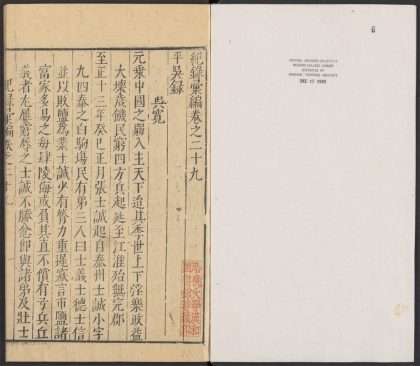 紀錄彙編卷之二十九
平吳錄
吳寬
元乗中國之弱入主天下迨其季世上下淫樂政益
大壞歲饑民窮四方兵起延至江淮殆無完郡
至正十三年癸巳正月張士誠起自泰州士誠小字
九四泰之白駒塲民有弟三人曰士義士德士信
並以販鹽為業士誠少有膂力重遲寡言市鹽諸
富家多易之每肆陵侮或負其直不償有弓兵丘
義者尤屢窘辱之士誠不勝忿即與諸弟及壯士
紀錄彙編卷之二十九
CHINESE-JAPANESE COLLECTION
HARVARD COLLEGE LIBRARY
DEC 17 1935
6